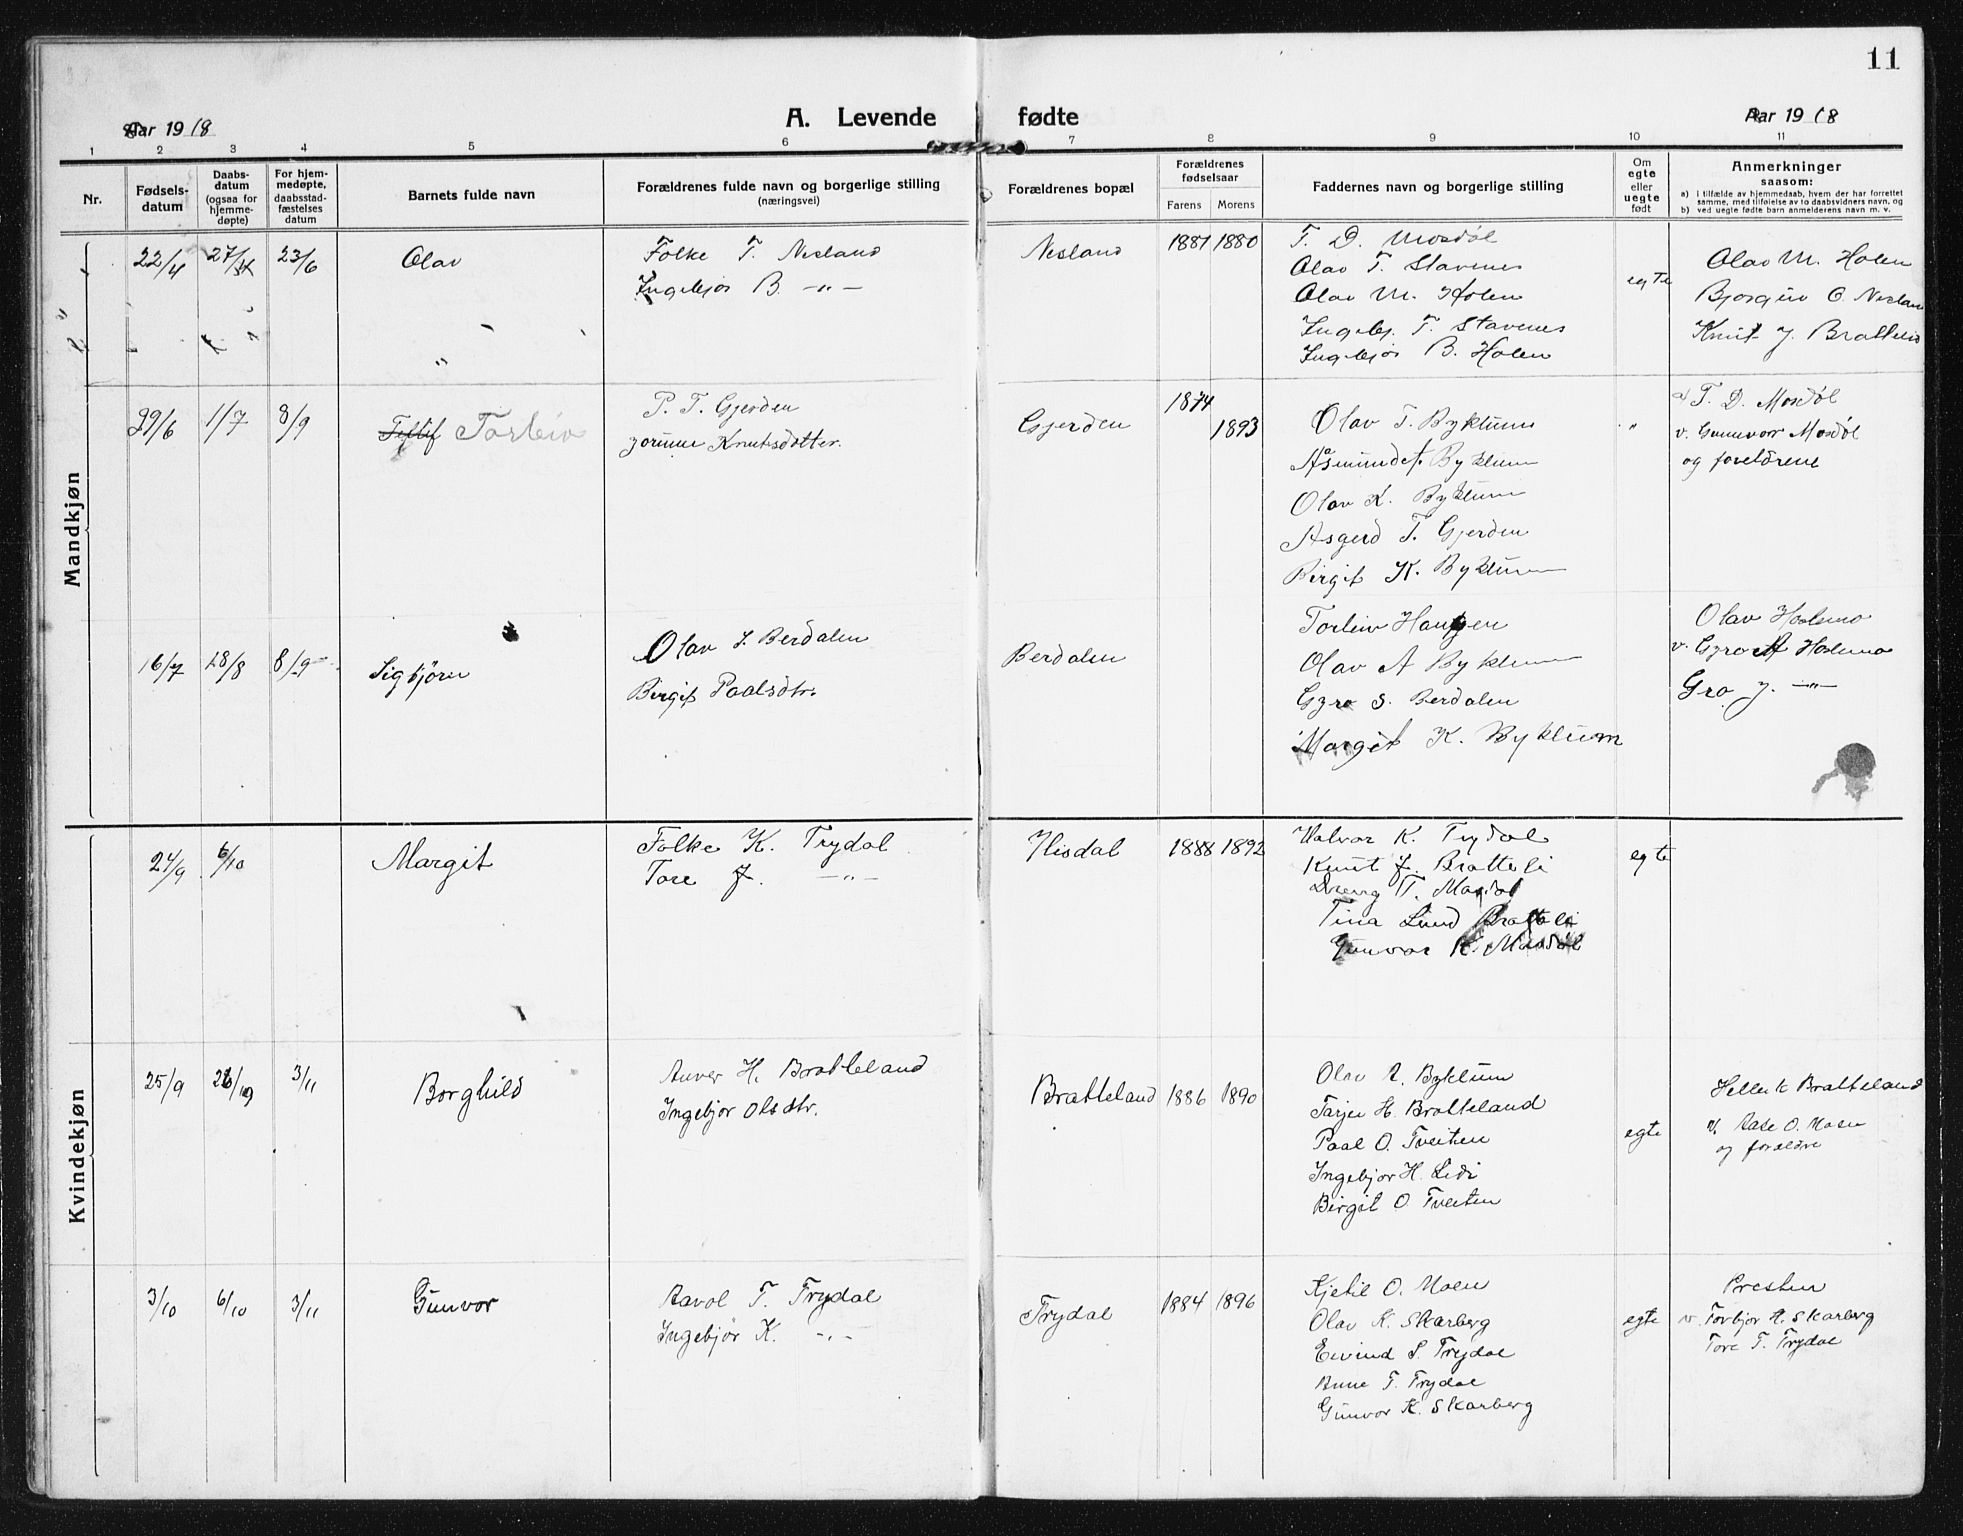 11
Aar 1918
A. Levende fødte
Aar 1918
1 2 3 4 5 6 7 8 9 10 11
Nr.
Fødsels-
datum
Daabs-
datum
(ogsaa for
hjemme-
døpte)
For hjem-
medøpte,
daabsstad-
fæstelses
datum
Barnets fulde navn
Forældrenes fulde navn og borgerlige stilling
(næringsvei)
Forældrenes bopæl
Forældrenes
fødselsaar
Farens Morens
Faddernes navn og borgerlige stilling
Om
egte
eller
uegte
født
Anmerkninger
saasom:
a) i tilfælde av hjemmedaab, hvem der har forrettet
samme, med tilføielse av to daabsvidners navn, og
b) ved uegte fødte barn anmelderens navn m. v.
Mandkjøn
22/4 27/4 23/6
Olav
Folke T. Nesland
Ingebjør B. -"-
Nesland
1881 1880
T. D. Mosdøl
Olav T. Stavenes
Olav M. Holen
Ingebj. T. Stavenes
Ingebjør B. Holen
egte
Olav M. Holen
Bjørgüv O. Nesland
Knut J. Bratteli
29/6 1/7 8/9
Torleiv
P. T. Gjerden
Jorunne Knutsdotter.
Gjerden
1874
1893
Olav T. Byklum
Åsmund A. Byklum
Olav K. Byklum
Asgerd T. Gjerden
Birgit K. Byklum
"
a) T. D. Mosdøl
v. Gunnvor Mosdøl
og foreldrene
16/7 28/8 8/9
Sigbjørn
Olav S. Berdalen
Birgit Paalsdtr.
Berdalen
Torleiv Haugen
Olav A Byklum
Gyro S. Berdalen
Margit K. Byklum
Olav Hoslemo
v. Gyro A Hoslemo
Gro J. -"-
Kvindekjøn
24/9 6/10
Margit
Folke K. Trydal
Tore J. -"-
Hisdal
1888 1892
Halvor K. Trydal
Knut J. Bratteli
Dreng T. Mosdøl
Tina Lund Bratteli
Gunvor K. Mosdøl
egte
25/9 26/10 3/11
Borghild
Anver H. Bratteland
Ingebjør Olsdtr.
Bratteland
1886 1890
Olav A. Byklum
Tarjei H. Bratteland
Paal O. Tveiten
Ingebjør H. Lidi
Birgit O Tveiten
egte
Hellek Bratteland
v. Aase O. Moen
og forældre
3/10 6/10 3/11
Gunvor
Aavol T. Trydal
Ingebjør K. -"-
Trydal
1884 1896
Kjetil O. Moen
Olav K. Skarberg
Eivind S. Trydal
Anne T. Trydal
Gunvor K. Skarberg
egte
Presten
v. Torbjør H. Skarberg
Tore T. Trydal